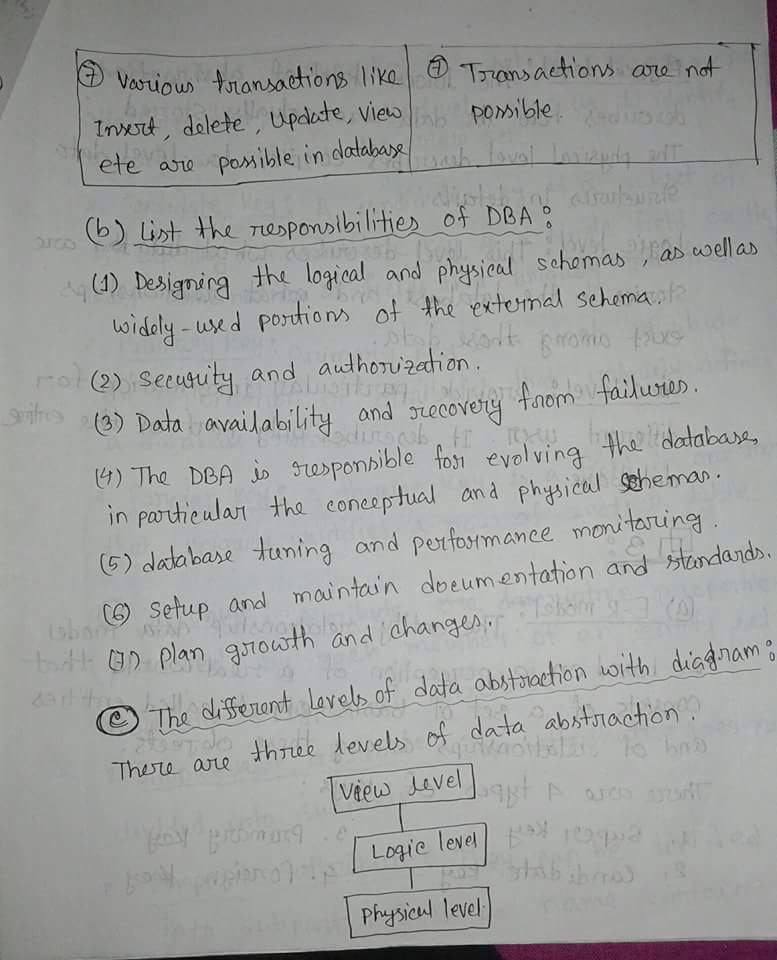 ⑦ Various transactions like
Insert, delete, Update, View
etc are possible in database
⑦ Transactions are not
possible.
(b) List the responsibilities of DBA:
(1) Designing the logical and physical schemas, as well as
widely-used portions of the external schema.
(2) Security and authorization.
(3) Data availability and recovery from failures.
(4) The DBA is responsible for evolving the database,
in particular the conceptual and physical schemas.
(5) database tuning and performance monitoring.
(6) Setup and maintain documentation and standards.
(7) Plan growth and changes.
(c) The different levels of data abstraction with diagram:
There are three levels of data abstraction.
View level
Logic level
Physical level